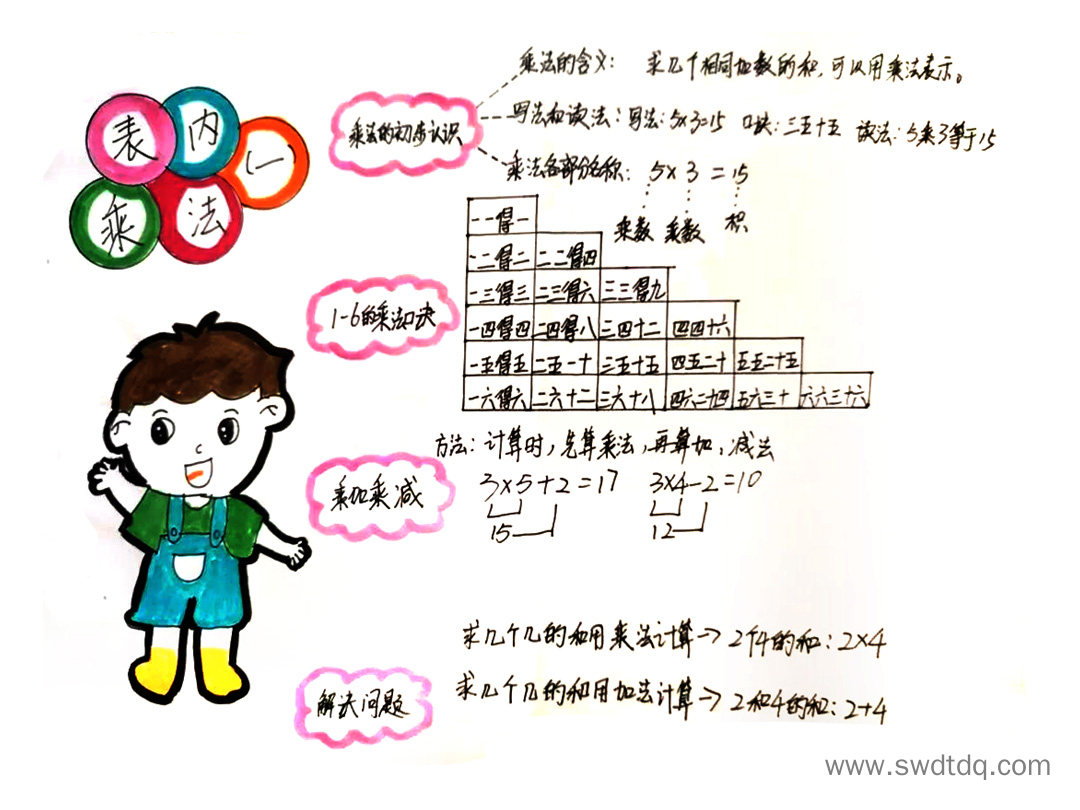 表内
(一)
乘法
乘法的初步认识
乘法的含义: 求几个相同加数的和,可以用乘法表示。
写法和读法:写法:5×3=15 口诀:三五十五 读法:5乘3等于15
乘法各部分名称: 5×3=15
乘数 乘数 积
1-6的乘法口诀
一一得一
一二得二 二二得四
一三得三 二三得六 三三得九
一四得四 二四得八 三四十二 四四十六
一五得五 二五一十 三五十五 四五二十 五五二十五
一六得六 二六十二 三六十八 四六二十四 五六三十 六六三十六
乘加乘减
方法:计算时,先算乘法,再算加、减法
3×5+2=17 3×4-2=10
15 12
解决问题
求几个几的和用乘法计算→2个4的和:2×4
求几个几的和用加法计算→2和4的和:2+4
www.swdtdq.com